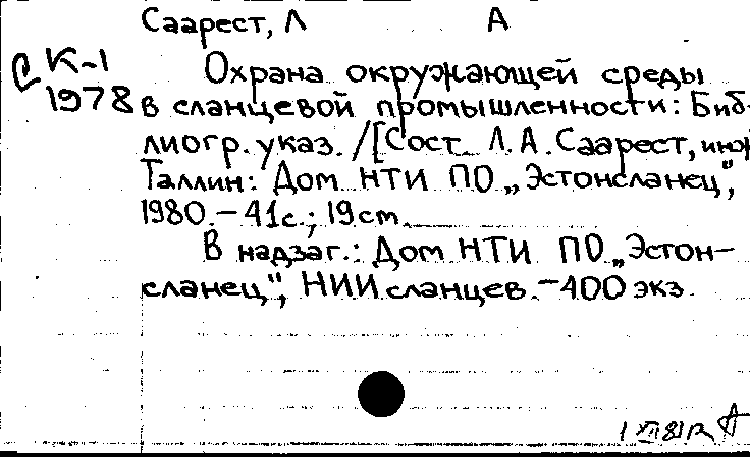 Саарест, Л А
К-1 Охрана окружающей среды
1978 в сланцевой промышленности: Биб
лиогр. указ. /[Сост. Л. А. Саарест, инж
Таллин: Дом НТИ ПО „Эстонсланец",
1980. – 41 с.; 19 cm.
В надзаг.: Дом НТИ ПО „Эстон–
сланец", НИИ сланцев. – 400 экз.